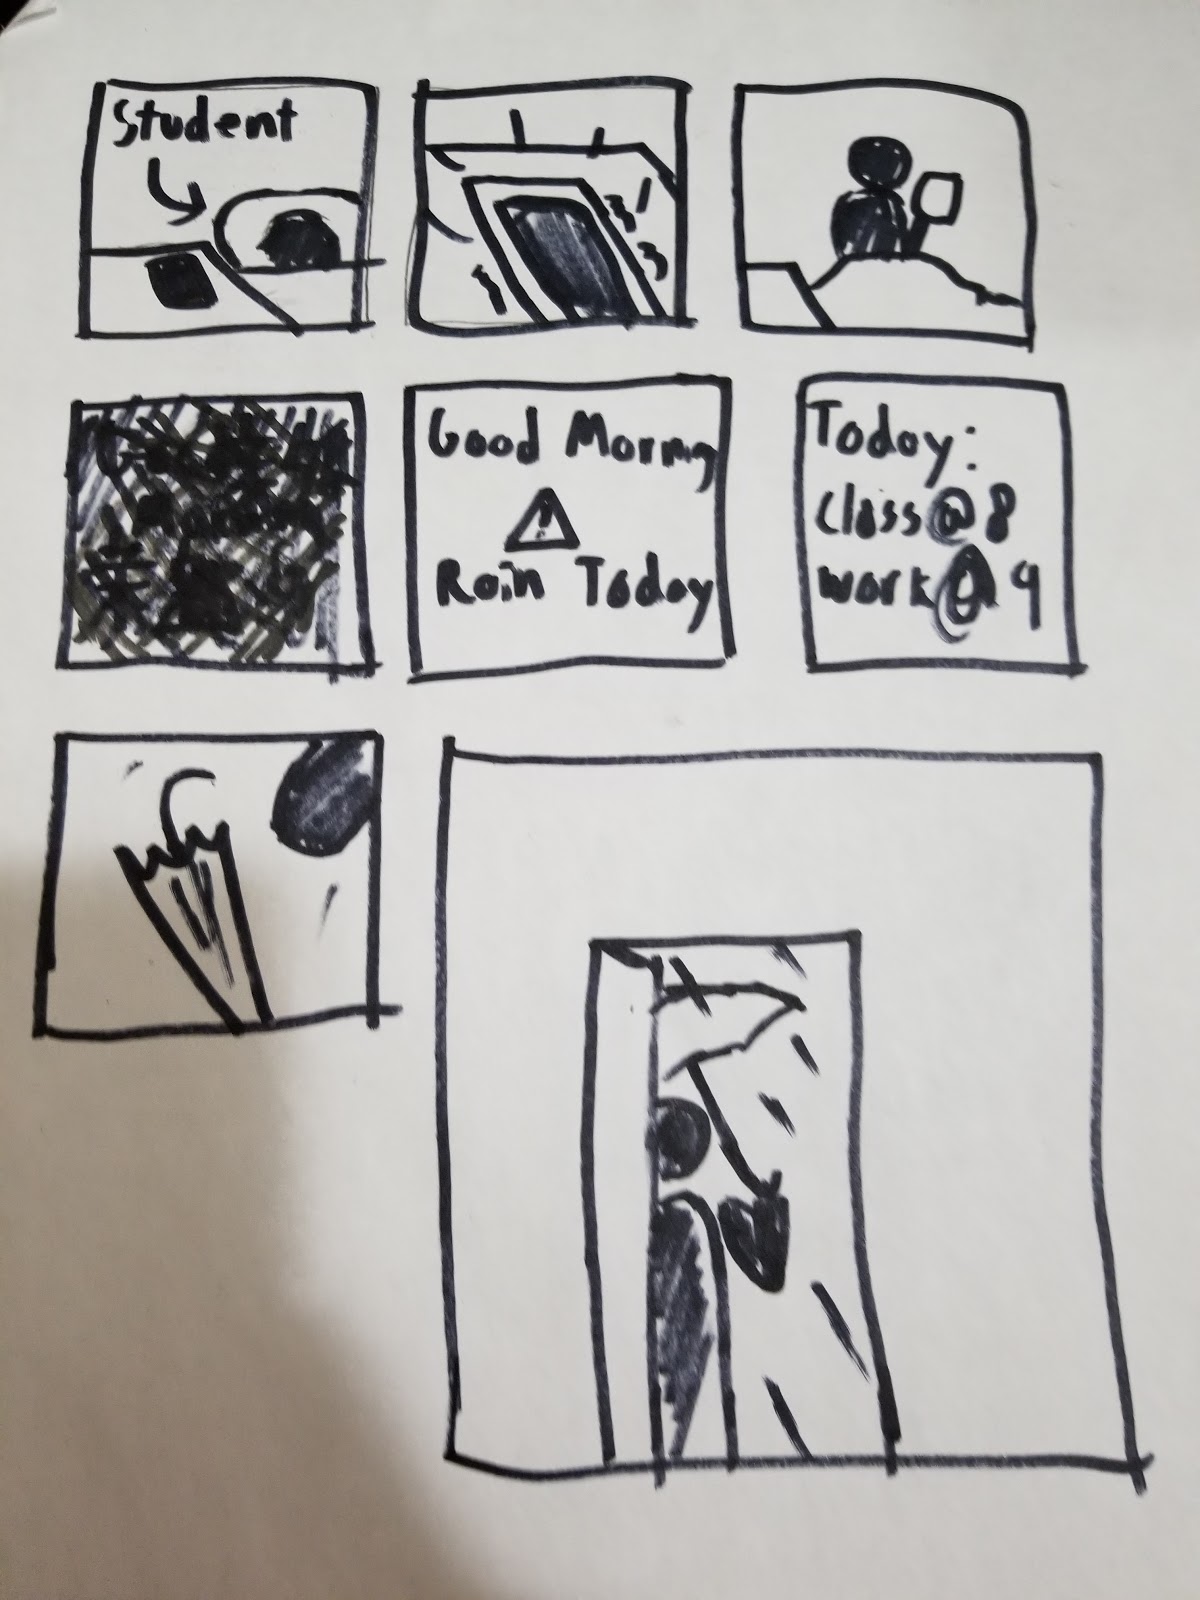 Student
Good Morning
!
Rain Today
Today:
Class@8
work@9